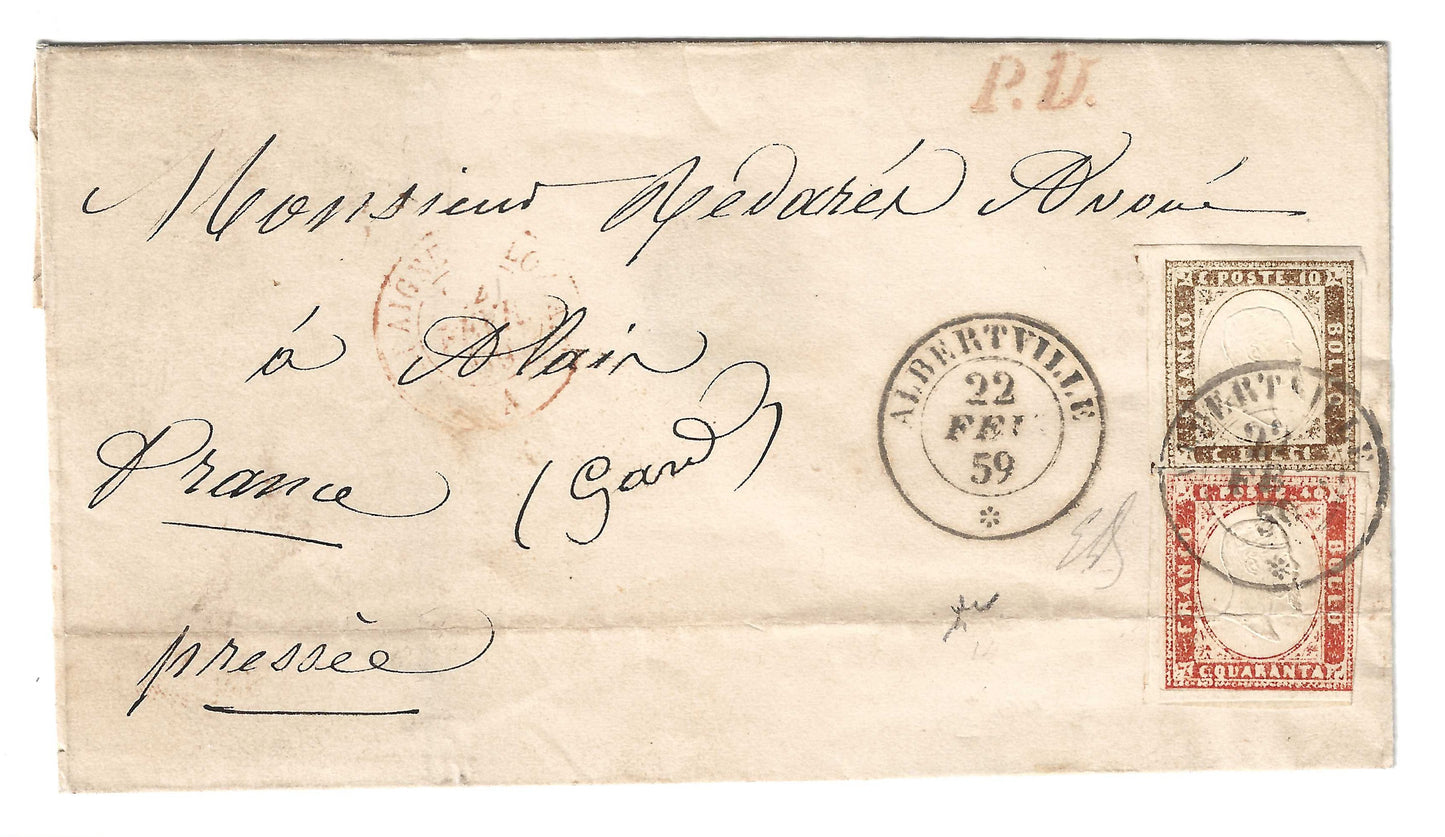 P.D.
Monsieur Rédarès Avoué
à Alais
France (Gard)
pressée
ALBERTVILLE
22
FEV
59
C POSTE 10
FRANCO
BOLLO
C POSTE 40
FRANCO
BOLLO
C QUARANTA
ALBERTVILLE
22